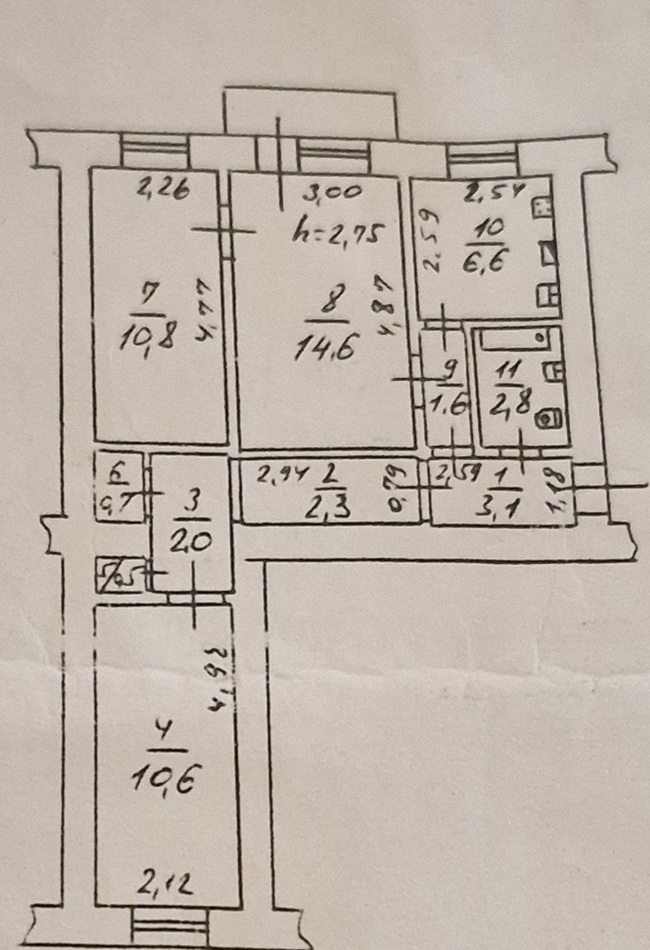 2,26
3,00
2,54
h=2,75
2,59
10
6,6
7
10,8
4,77
8
14.6
4,87
9
1.6
11
2,8
6
0,7
3
2,0
2,94
2
2,3
0,79
2,59
1
3,1
1,18
5/0,5
4,92
4
10,6
2,12